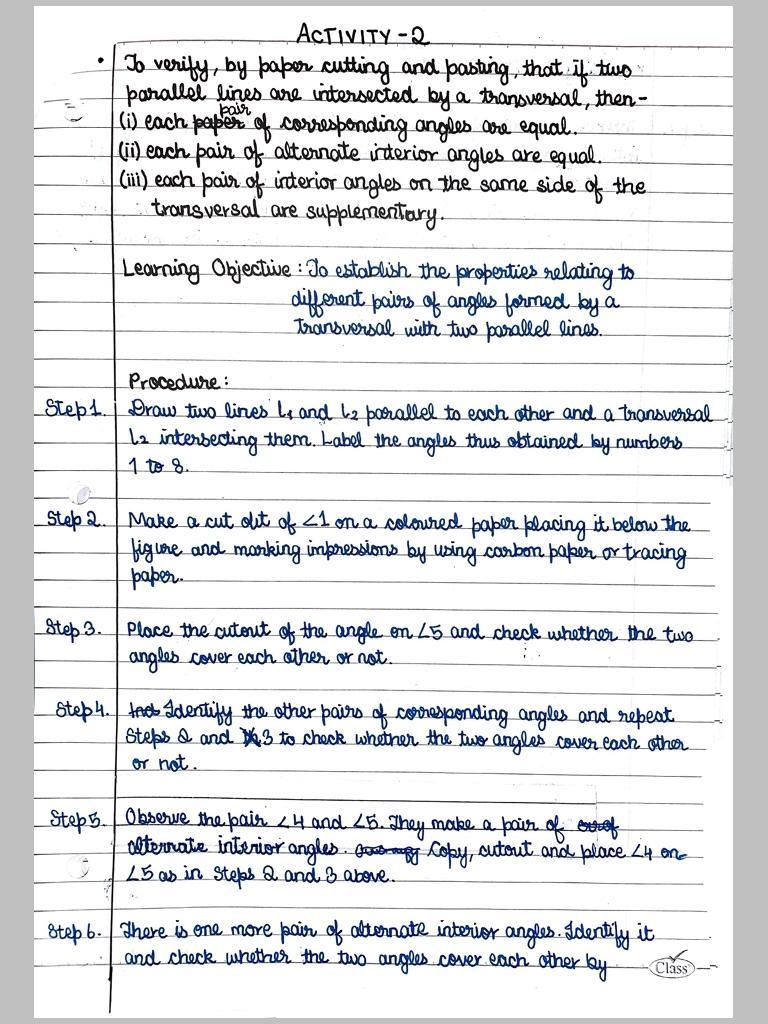 ACTIVITY - 2
• To verify, by paper cutting and pasting, that if two
parallel lines are intersected by a transversal, then-
(i) each pair of corresponding angles are equal.
(ii) each pair of alternate interior angles are equal.
(iii) each pair of interior angles on the same side of the
transversal are supplementary.
Learning Objective : To establish the properties relating to
different pairs of angles formed by a
transversal with two parallel lines.
Procedure :
Step 1. Draw two lines l₁ and l₂ parallel to each other and a transversal
l₂ intersecting them. Label the angles thus obtained by numbers
1 to 8.
Step 2. Make a cut out of ∠1 on a coloured paper placing it below the
figure and marking impressions by using carbon paper or tracing
paper.
Step 3. Place the cutout of the angle on ∠5 and check whether the two
angles cover each other or not.
Step 4. Identify the other pairs of corresponding angles and repeat
Steps 2 and 3 to check whether the two angles cover each other
or not.
Step 5. Observe the pair ∠4 and ∠5. They make a pair of
alternate interior angles. Copy, cutout and place ∠4 on
∠5 as in Steps 2 and 3 above.
Step 6. There is one more pair of alternate interior angles. Identify it
and check whether the two angles cover each other by
Class